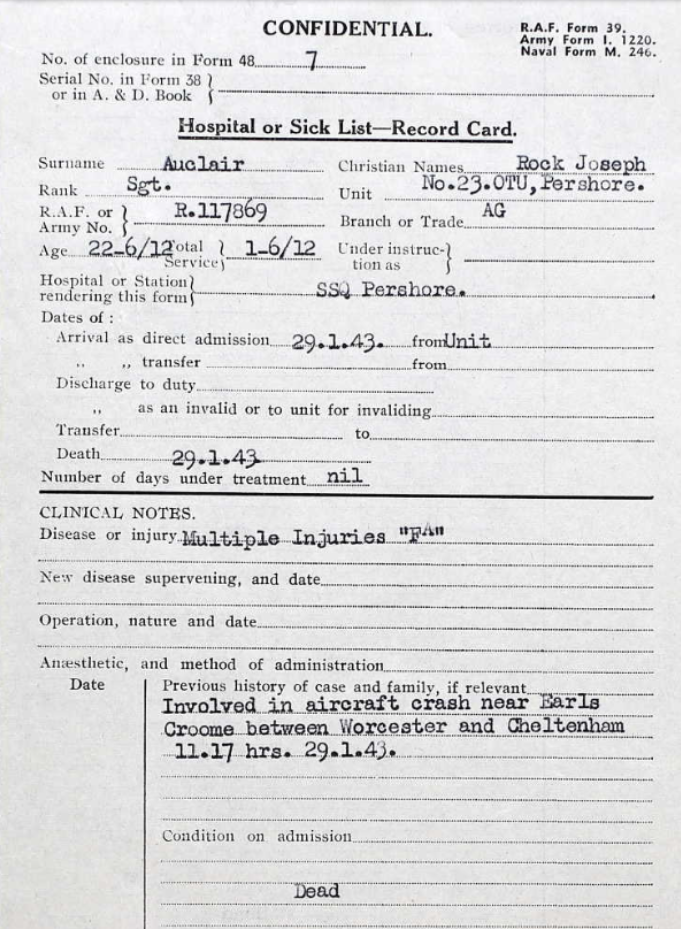 CONFIDENTIAL.
R.A.F. Form 39.
Army Form I. 1220.
Naval Form M. 246.
No. of enclosure in Form 48 7
Serial No. in Form 38 }
or in A. & D. Book
Hospital or Sick List—Record Card.
Surname Auclair Christian Names Rock Joseph
Rank Sgt. Unit No.23.OTU, Pershore.
R.A.F. or } R.117869 Branch or Trade AG
Army No.
Age 22-6/12 Total } 1-6/12 Under instruc- }
Service tion as
Hospital or Station } SSQ Pershore.
rendering this form
Dates of :
Arrival as direct admission 29.1.43. from Unit
,, ,, transfer from
Discharge to duty
,, as an invalid or to unit for invaliding
Transfer to
Death 29.1.43
Number of days under treatment nil
CLINICAL NOTES.
Disease or injury Multiple Injuries "FA"
New disease supervening, and date
Operation, nature and date
Anæsthetic, and method of administration
Date Previous history of case and family, if relevant
Involved in aircraft crash near Earls
Croome between Worcester and Cheltenham
11.17 hrs. 29.1.43.
Condition on admission
Dead